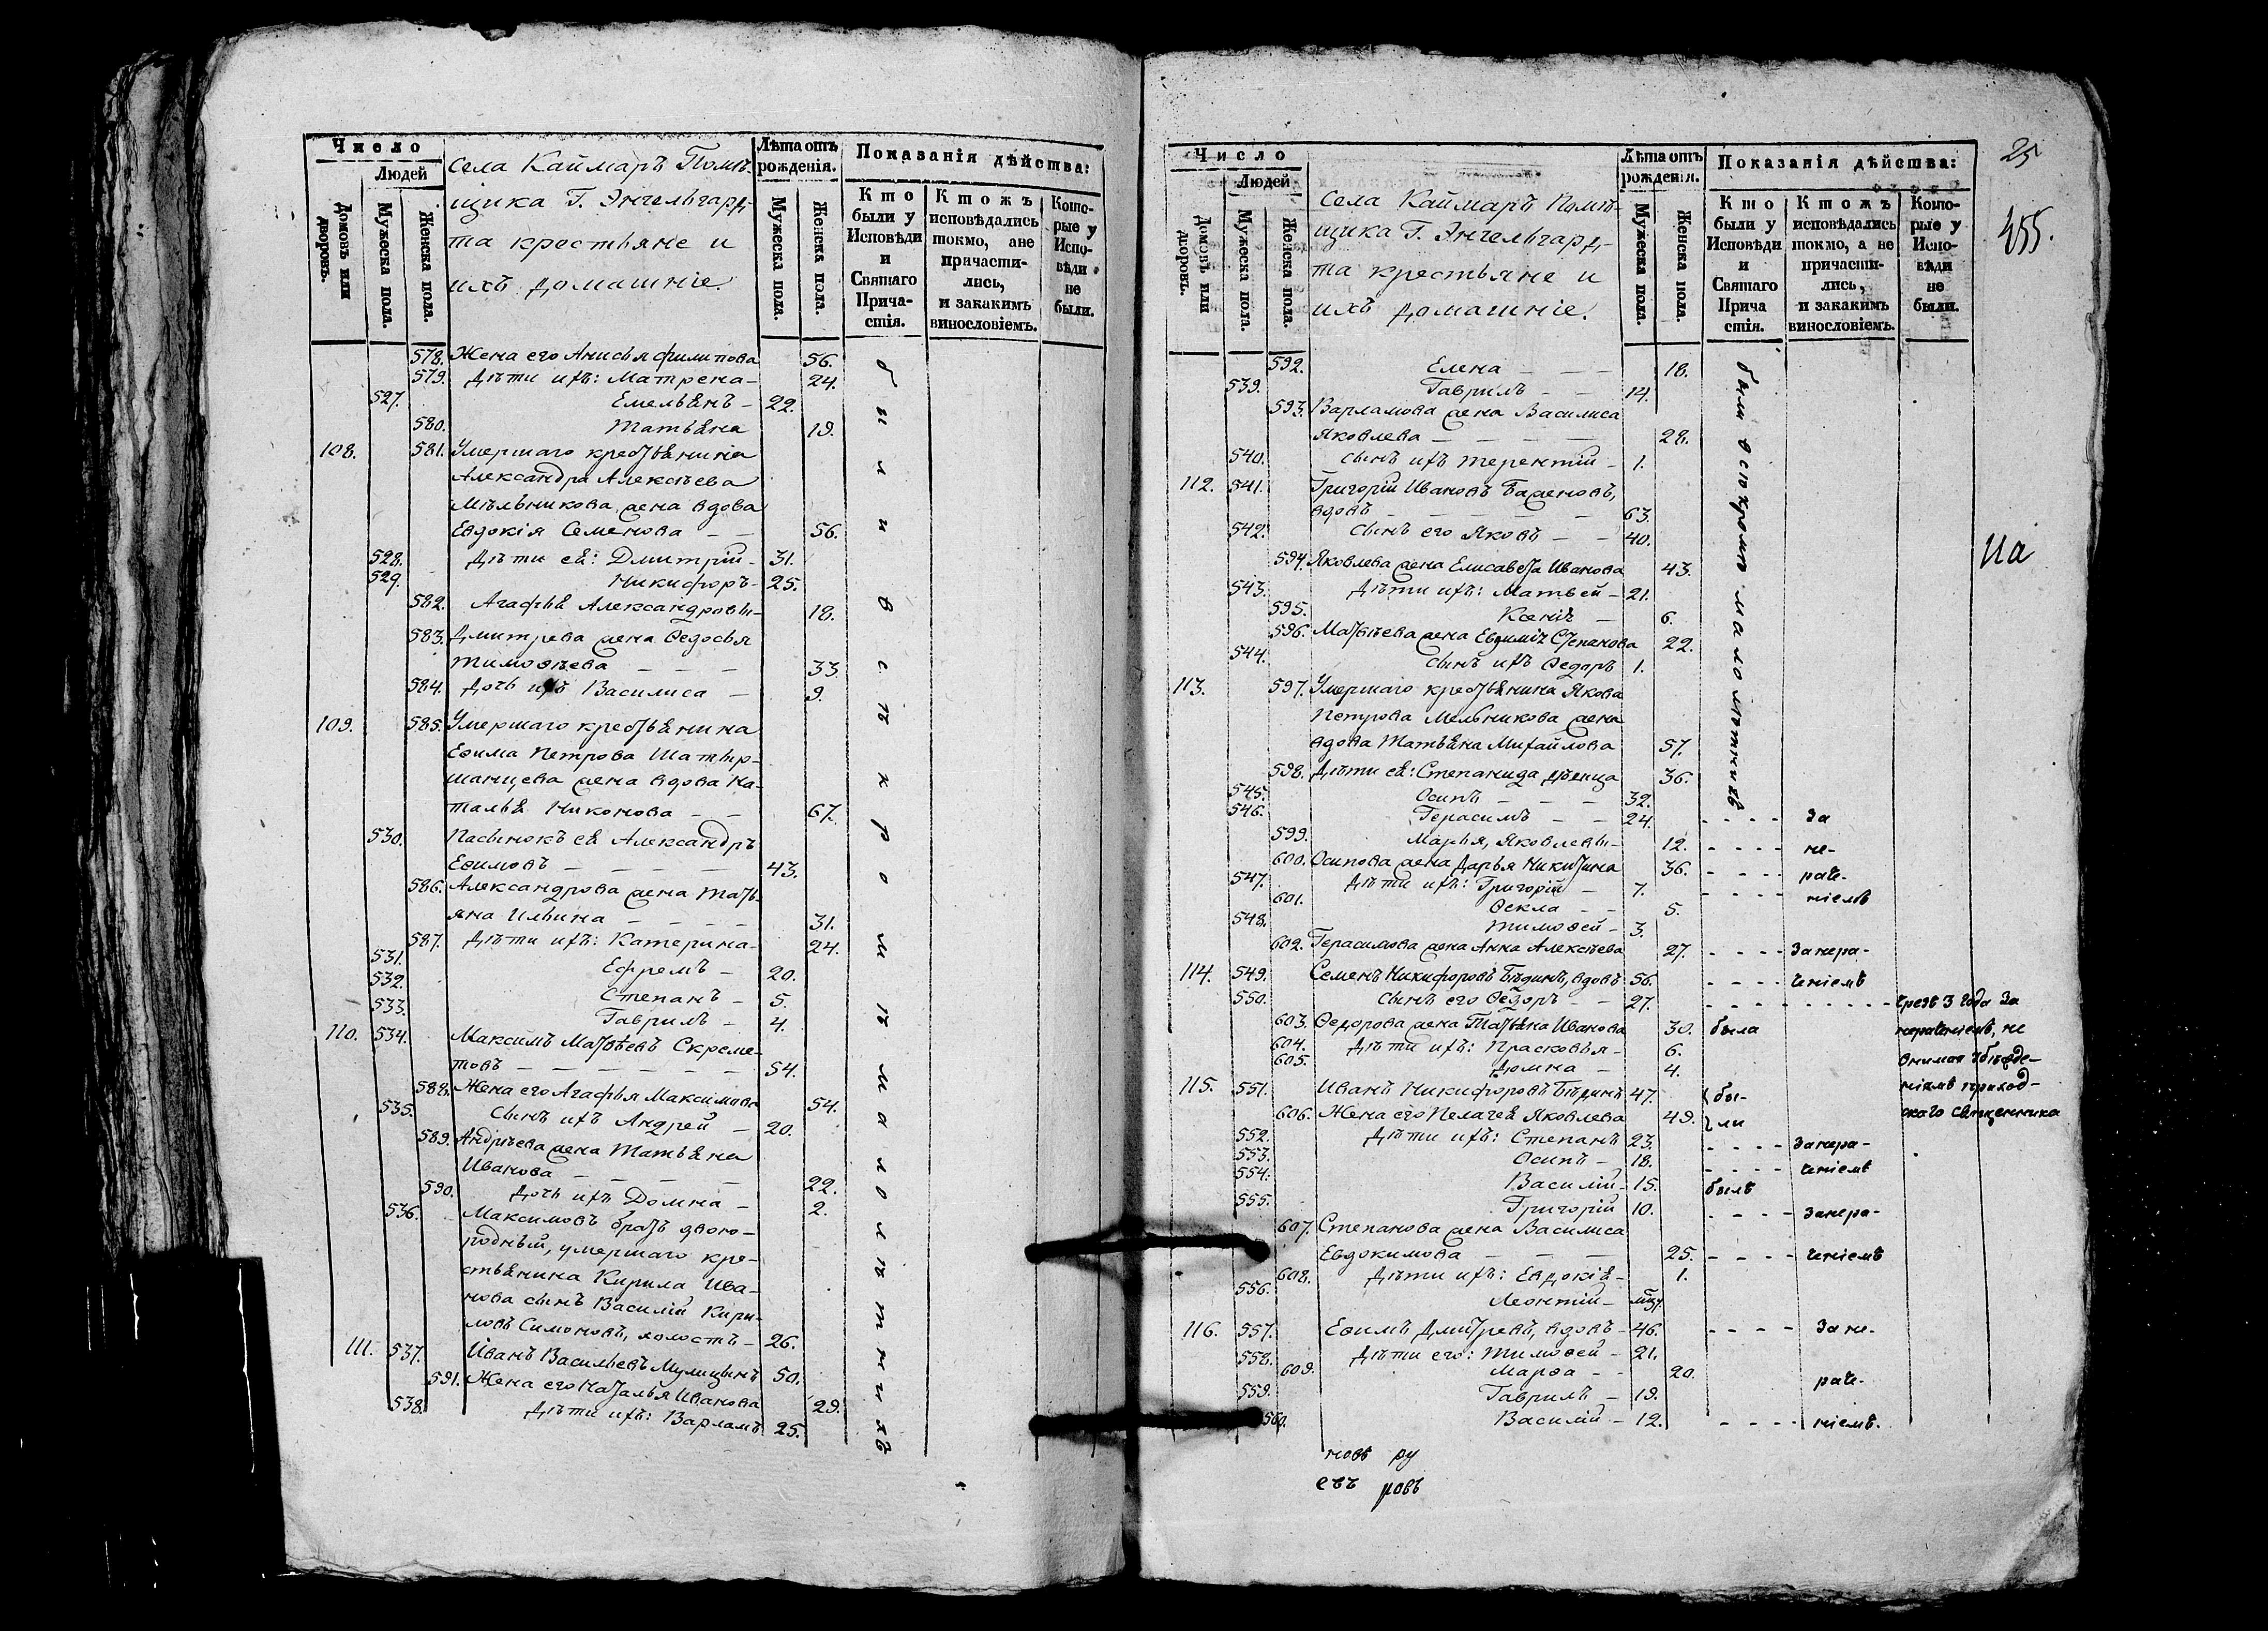 Число
Людей
Домовъ или дворовъ.
Мужеска пола.
Женска пола.
Села Каймаръ Помѣ-
щика Г. Энгельгард-
та крестьяне и
ихъ домашніе.
Лѣта отъ рожденія.
Мужеска пола.
Женска пола.
Показанія дѣйства:
Кто были у Исповѣди и Святаго Прича-стія.
Ктожъ исповѣдались токмо, а не причасти-лись, и закакимъ винословіемъ.
Кото-рые у Испо-вѣди не были.
578. Жена его Анисья Филипова 56.
579. Дѣти ихъ: Матрена - 24.
527. Емельянъ - 22.
580. Татьяна 19.
108. 581. Умершаго крестьянина
Александра Алексѣева
Мѣльникова жена вдова
Евдокія Семенова - - 56.
528. Дѣти ея: Дмитрій - 31.
529. Никифоръ - 25.
582. Агафья Александровы - 18.
583. Дмитрева жена Ѳедосья
Тимоѳѣева - - - 33.
584. Дочь ихъ Василиса - 9.
109. 585. Умершаго крестьянина
Еѳима Петрова
жена вдова На-
талья Никонова - - 67.
530. Пасынокъ ея Александръ
Еѳимовъ - - - - 43.
586. Александрова жена Тать-
яна Ильина - - - - 31.
587. Дѣти ихъ: Катерина - 24.
531. Ефремъ - 20.
532. Степанъ - 5.
533. Гаврилъ - 4.
110. 534. Максимъ Матвѣевъ Скреме-
товъ - - - - - - 54.
588. Жена его Агафья Максимова 54.
535. Сынъ ихъ Андрей - 20.
589. Андрѣева жена Татьяна
Иванова - - - - 22.
590. Дочь ихъ Домна - 2.
536. Максимовъ братъ двою-
родный, умершаго кре-
стьянина Кирила Ива-
нова сынъ Василій Кири-
ловъ Симоновъ, холостъ - 26.
111. 537. Иванъ Васильевъ Мулицынъ 50.
591. Жена его Наталья Иванова 29.
538. Дѣти ихъ: Варламъ 25.
были всѣ кромѣ малолѣтнихъ
25
455.
Число
Людей
Домовъ или дворовъ.
Мужеска пола.
Женска пола.
Села Каймаръ Помѣ-
щика Г. Энгельгард-
та крестьяне и
ихъ домашніе.
Лѣта отъ рожденія.
Мужеска пола.
Женска пола.
Показанія дѣйства:
Кто были у Исповѣди и Святаго Прича стія.
Ктожъ исповѣдались токмо, а не причасти-лись, и закакимъ винословіемъ.
Кото-рые у Испо-вѣди не были.
592. Елена - - - 18.
539. Гаврилъ - - 14.
593. Варламова жена Василиса
Яковлева - - - - - 28.
540. Сынъ ихъ Терентій - 1.
112. 541. Григорій Ивановъ Баженовъ,
вдовъ - - - - - - 63.
542. Сынъ его Яковъ - - 40.
594. Яковлева жена Елисавета Иванова 43.
543. Дѣти ихъ: Матвей - 21.
595. Ксенія - 6.
596. Матвѣева жена Евфимія Степанова 22.
544. Сынъ ихъ Ѳедоръ 1.
113. 597. Умершаго крестьянина Якова
Петрова Мельникова жена
вдова Татьяна Михайлова 57.
598. Дѣти ея: Степанида дѣвица 36.
545. Осипъ - - - 32.
546. Герасимъ - - 24. - - - - За
599. Марья, Яковлевы - 12. - - - - не-
600. Осипова жена Дарья Никитина 36. - - - - раче-
547. Дѣти ихъ: Григорій - 7. - - - - ніемъ
601. Ѳекла - - 5.
548. Тимоѳей - 3.
602. Герасимова жена Анна Алексѣева 27. - - - - За нера-
114. 549. Семенъ Никифоровъ Бѣдинъ, вдовъ 56. - - - - ченіемъ
550. Сынъ его Ѳедоръ - - 27. - - - - - - - - чрезъ 3 года За
603. Ѳедорова жена Татьяна Иванова 30. была нераченіемъ, не
604. Дѣти ихъ: Прасковья - 6. внимая убѣжде-
605. Домна - 4. ніямъ приход-
115. 551. Иванъ Никифоровъ Бѣдинъ 47. бы- скаго священника
606. Жена его Пелагея Яковлева 49. ли
552. Дѣти ихъ: Степанъ 23. - - - - За нера-
553. Осипъ - 18. - - - - ченіемъ
554. Василій - 15. былъ
555. Григорій 10. - - - - За нера-
607. Степанова жена Василиса
Евдокимова - - - 25. - - - - ченіемъ
608. Дѣти ихъ: Евдокія - 1.
556. Леонтій -
116. 557. Еѳимъ Дмитревъ, вдовъ - 46. - - - - За не-
558. Дѣти его: Тимоѳей - 21.
609. Марѳа - - 20. раче-
559. Гаврилъ - 19.
560. Василій - 12. - - - - ніемъ.
были всѣ кромѣ малолѣтнихъ
новъ ру
евъ ровъ